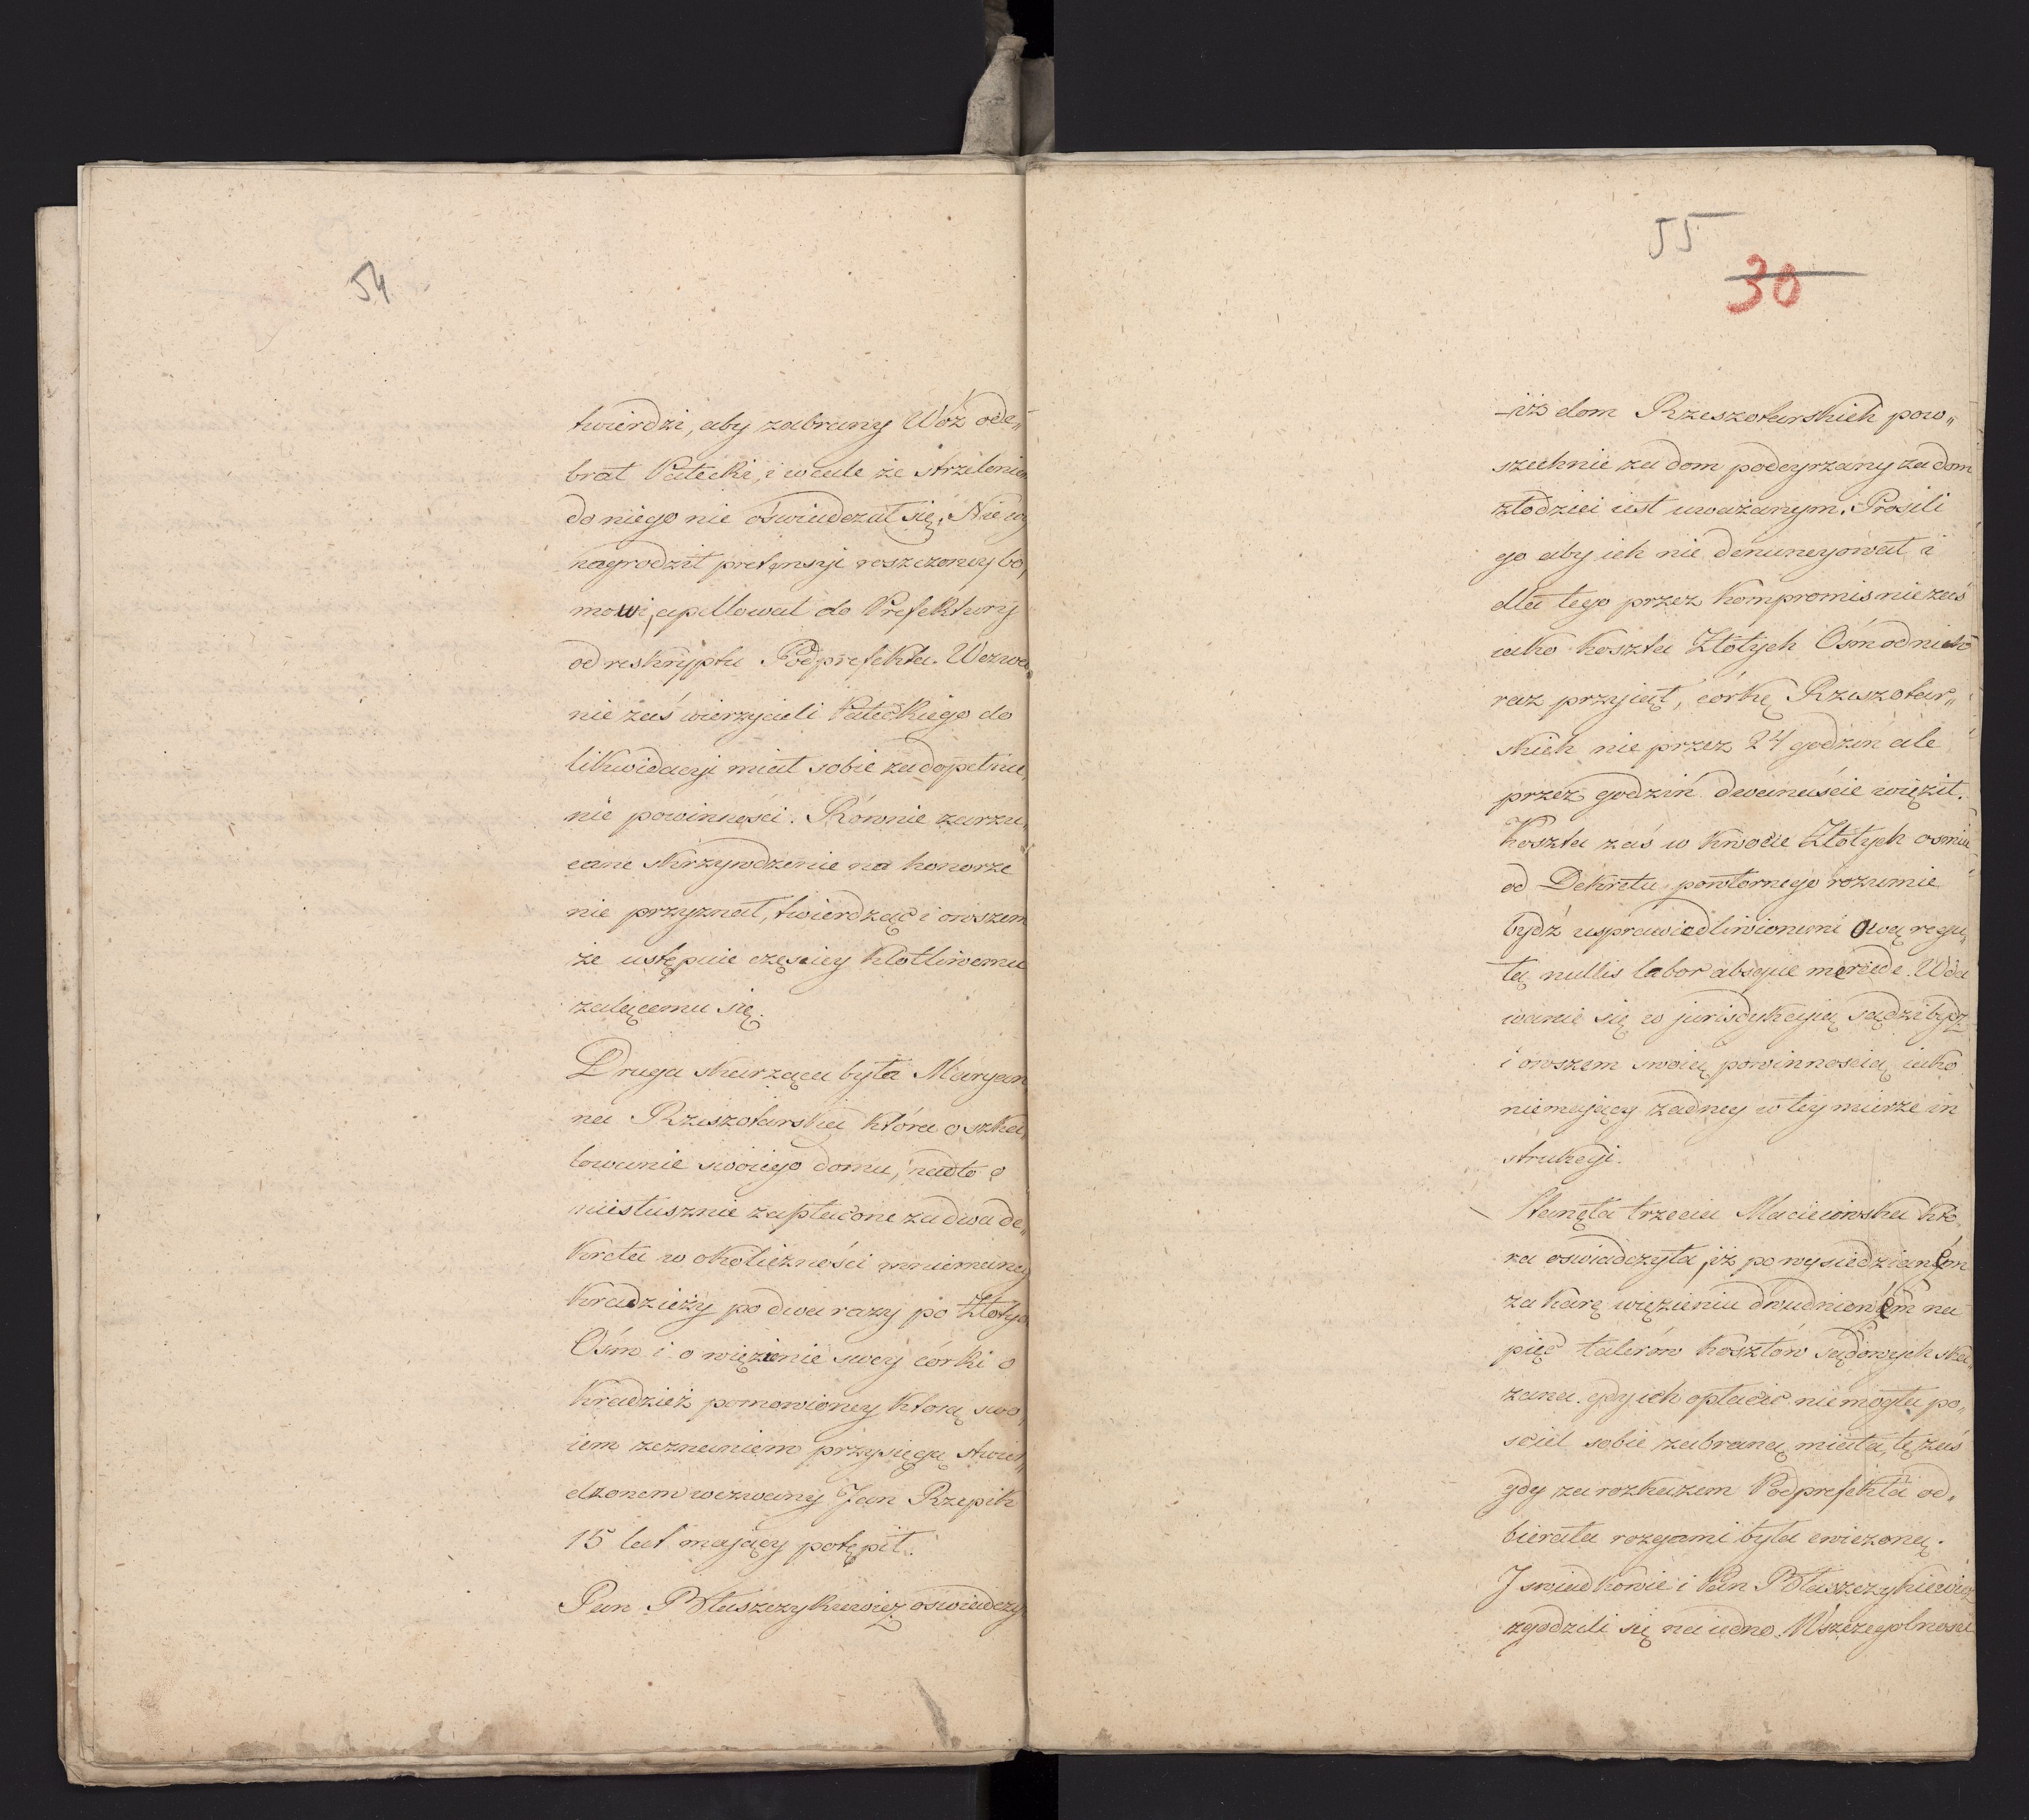 54
twierdzi, aby zabrany Wóz ode„
brał Pałecki, i wcale że strzeleniem
do niego nie oświadczał się. Nie wy
nagrodził pretensyi roszczoney bo,
mowi, apellował do Prefektury
od reskryptu Podprefekta. Wezwa„
nie zaś wierzycieli Pałeckiego do
likwidacyi miał sobie za dopełnie„
nie powinności. Równie zarzu„
cane skrzywdzenie na honorze
nie przyznał, twierdząc i owszem
że ustępuie częściey kłótliwemu
żalącemu się.
Druga skarząca była Maryan
na Rzeszotarska która o szka„
lowanie swoiego domu, nadto o
niesłusznie zapłacone za dwa de„
kreta w okoliczności mniemaney
kradzieży po dwa razy po Złotych
Ośm i o więzienie swey córki o
kradzież pomowioney którą swo„
iem zeznaniem przysięgą stwier„
dzonem wezwany Jan Rzepik
15 lat mający potępił.
Pan Błaszczykiewicz oświadczył
55
30
iż dom Rzeszotarskich pow„
szechnie za dom podeyrzany za dom
złodziei iest uważanym. Prosili
go aby ich nie denuncyował i
dla tego przez kompromis nie zaś
iako koszta Złotych Ośm od nich
raz przyiął, córkę Rzeszotar„
skich nie przez 24 godzin ale
przez godzin dwanaście więził.
Koszta zaś w kwocie Złotych osmiu
od Dekretu powtornego rozumie
bydź usprawiedliwionemi ową regu„
łą nullis labor absque mercede. Wda
wanie się w jurisdykcyią sądzi bydź
i owszem swoią powinnoscią iako
niemający żadney w tey mierze in
strukcyi.
Stanęła trzecia Macieiowska któ„
ra oswiadczyła, iż po wysiedzianém
za karę więzieniu dwudniowém na
pięć talerów kosztów sądowych ska„
zana. gdy ich opłacić niemogła po„
sciel sobie zabraną miała, tę zaś
gdy za rozkazem Podprefekta od„
bierała rozgami była cwiczoną.
I swiadkowie i Pan Błaszczykiewicz
zgodzili się na iedno. Wszczegolnosci